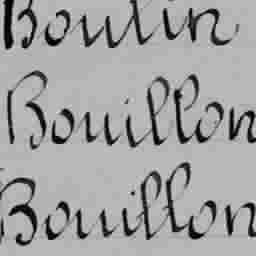 Boulin
Bouillon
Bouillon